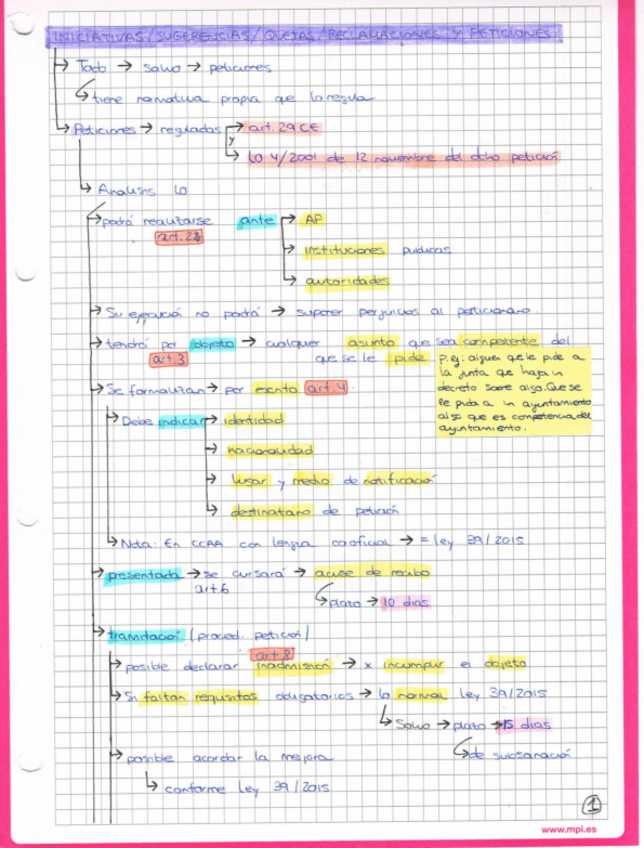 INICIATIVAS/SUGERENCIAS/QUEJAS/RECLAMACIONES Y PETICIONES.
→ Todo → Salvo → peticiones
→ tiene normativa propia que la regula
→ Peticiones → reguladas → art. 29 CE
y
→ LO 4/2001 de 12 noviembre del dcho petición
→ Analisis LO
→ podrá realizarse ante → AP
art. 2
→ instituciones publicas
→ autoridades
→ Su ejecució no podrá → suponer perjuicios al peticionario.
→ tendrá por objeto → cualquier asunto que sea competente del
art 3 que se le pide
p.ej: alguien qe le pide a
la junta qe haga un
decreto sobre algo. Que se
le pida a un ayuntamiento
algo que es competencia del
ayuntamiento.
→ Se formalizan → por escrito art. 4
→ Debe indicar → identidad
→ nacionalidad
→ lugar y medio de notificació
→ destinatario de petición
→ Nota: En CCAA con lengua cooficial → = ley 39/2015
→ presentada → se cursará → acuse de recibo
art 6
→ plazo → 10 dias
→ tramitació (proced. petició)
art 8
→ posible declarar inadmisión → x incumplir el objeto
→ Si faltan requisitos obligatorios → lo normal ley 39/2015
→ Salvo → plazo → 15 dias
→ de subsanació
→ posible acordar la mejora
→ conforme ley 39/2015
1
www.mpi.es